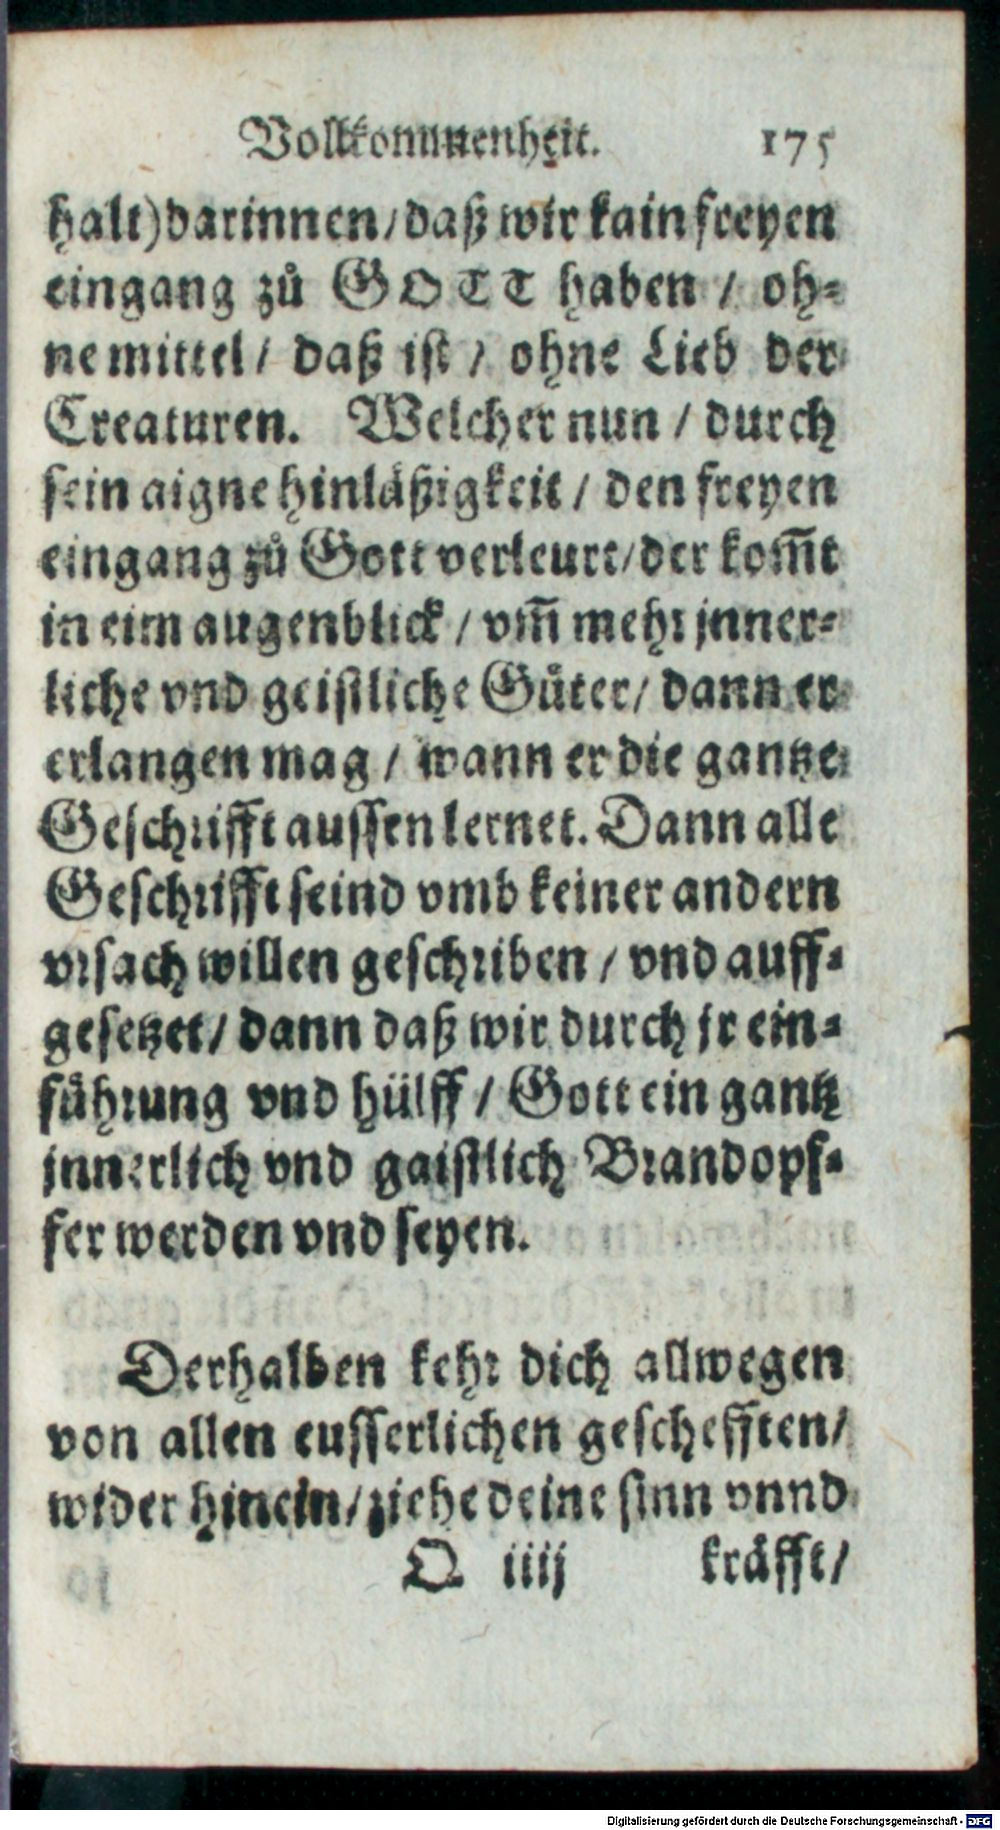 Vollkommenheit. 175
halt) darinnen / daß wir kain freyen
eingang zů GOTT haben / oh-
ne mittel / daß ist / ohne Lieb der
Creaturen. Welcher nun / durch
sein aigne hinläßigkeit / den freyen
eingang zů Gott verleurt / der kom̃t
in eim augenblick / vm̃ mehr jnner-
liche vnd geistliche Gůter / dann er
erlangen mag / wann er die gantze
Geschrifft aussen lernet. Dann alle
Geschrifft seind vmb keiner andern
vrsach willen geschriben / vnd auff-
gesetzet / dann daß wir durch jr ein-
fůhrung vnd hülff / Gott ein gantz
jnnerlich vnd gaistlich Brandopf-
fer werden vnd seyen.
Derhalben kehr dich allwegen
von allen eusserlichen geschefften /
wider hinein / ziehe deine sinn vnnd
O iiij kräfft /
Digitalisierung gefördert durch die Deutsche Forschungsgemeinschaft - DFG